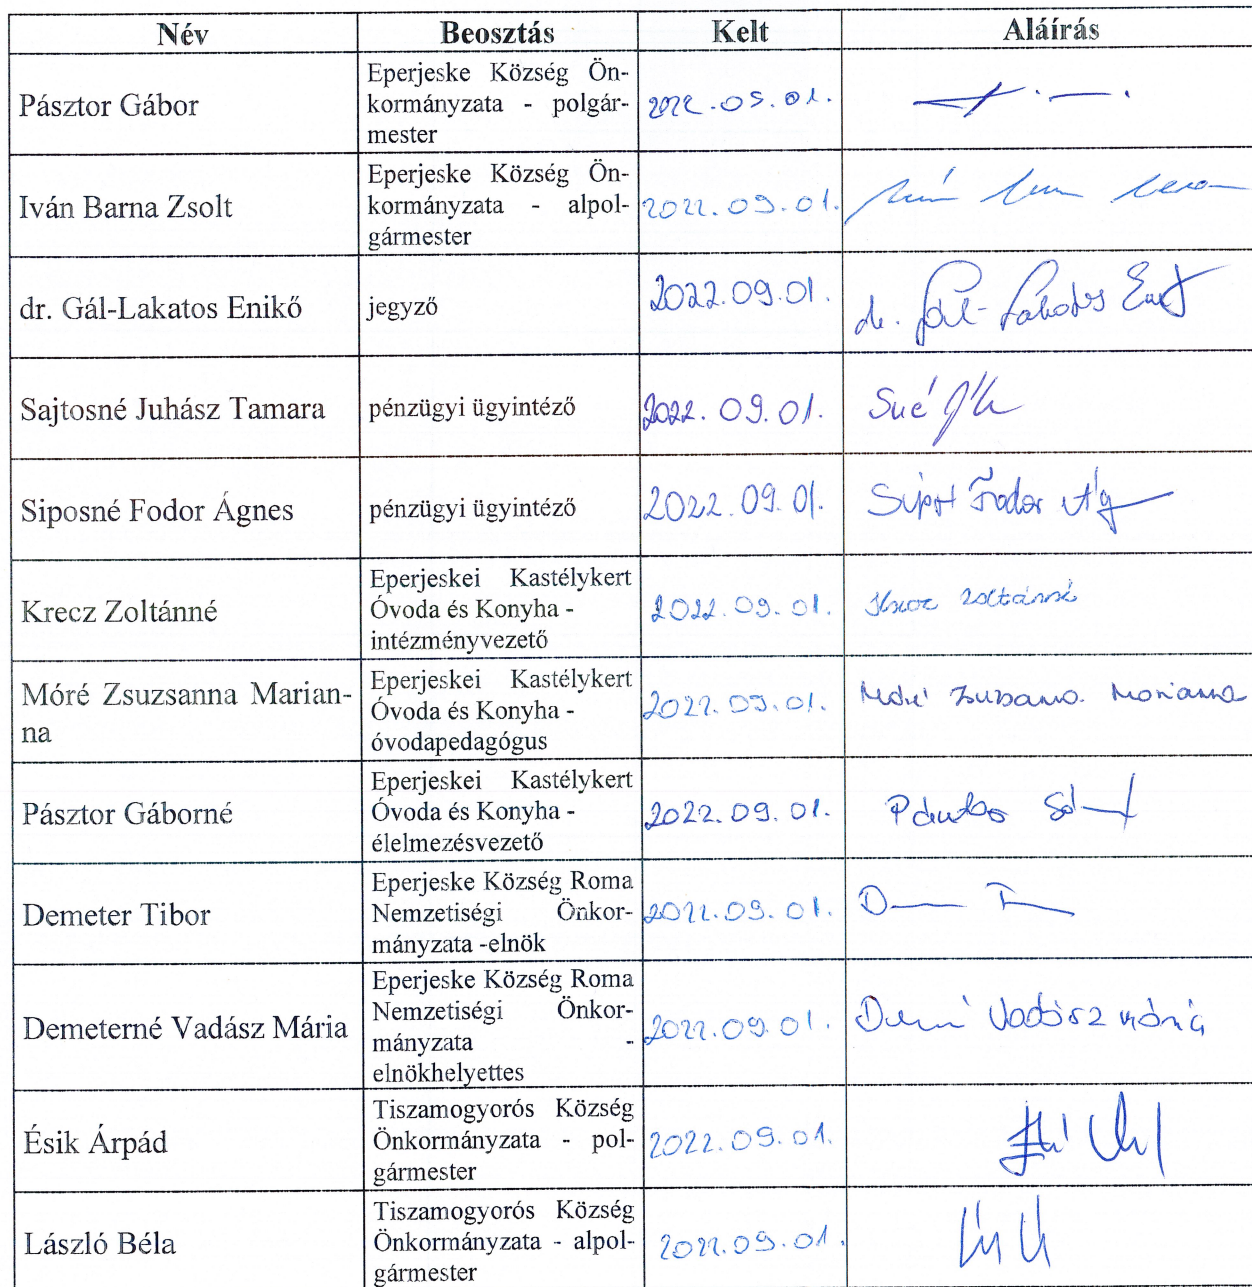 Név Beosztás Kelt Aláírás
Pásztor Gábor
Eperjeske Község Ön-
kormányzata - polgár-
mester
2022.09.01.
Iván Barna Zsolt
Eperjeske Község Ön-
kormányzata - alpol-
gármester
2022.09.01.
dr. Gál-Lakatos Enikő
jegyző
2022.09.01.
dr. Gál-Lakatos
Sajtosné Juhász Tamara
pénzügyi ügyintéző
2022.09.01.
Siposné Fodor Ágnes
pénzügyi ügyintéző
2022.09.01.
Fodor
Krecz Zoltánné
Eperjeskei Kastélykert
Óvoda és Konyha -
intézményvezető
2022.09.01.
Krecz Zoltánné
Móré Zsuzsanna Marian-
na
Eperjeskei Kastélykert
Óvoda és Konyha -
óvodapedagógus
2022.09.01.
Móré Zsuzsanna Marianna
Pásztor Gáborné
Eperjeskei Kastélykert
Óvoda és Konyha -
élelmezésvezető
2022.09.01.
Demeter Tibor
Eperjeske Község Roma
Nemzetiségi Önkor-
mányzata -elnök
2022.09.01.
Demeterné Vadász Mária
Eperjeske Község Roma
Nemzetiségi Önkor-
mányzata -
elnökhelyettes
2022.09.01.
Vadász Mária
Ésik Árpád
Tiszamogyorós Község
Önkormányzata - pol-
gármester
2022.09.01.
László Béla
Tiszamogyorós Község
Önkormányzata - alpol-
gármester
2022.09.01.